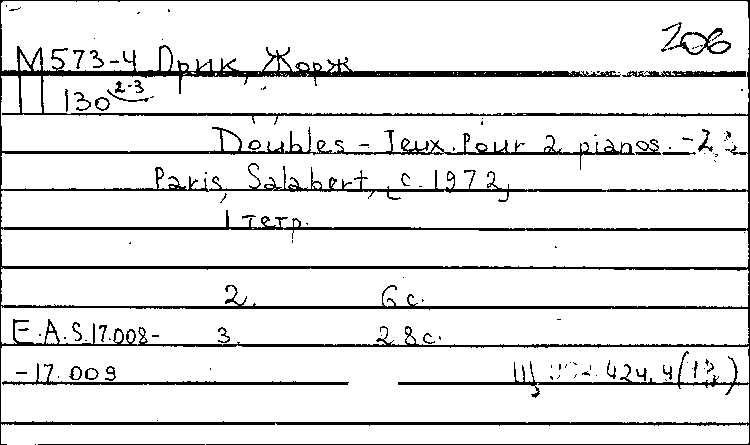 206
М573-4 Орик, Жорж
130 2-3
Doubles – Jeux. Pour 2 pianos. -2,3.
Paris, Salabert, [c. 1972]
1 тетр.
2. 6 с.
E.A.S.17.008- 3. 28 с.
-17.009 Щ 424.4(13)